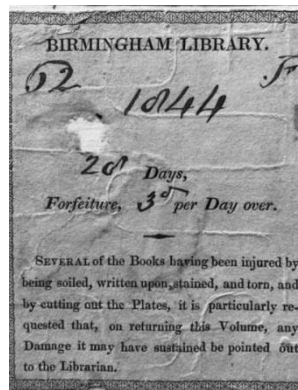 BIRMINGHAM LIBRARY.
52
1844
28 Days,
Forfeiture, 3d per Day over.
SEVERAL of the Books having been injured by
being soiled, written upon, stained, and torn, and
by cutting out the Plates, it is particularly re-
quested that, on returning this Volume, any
Damage it may have sustained be pointed out
to the Librarian.